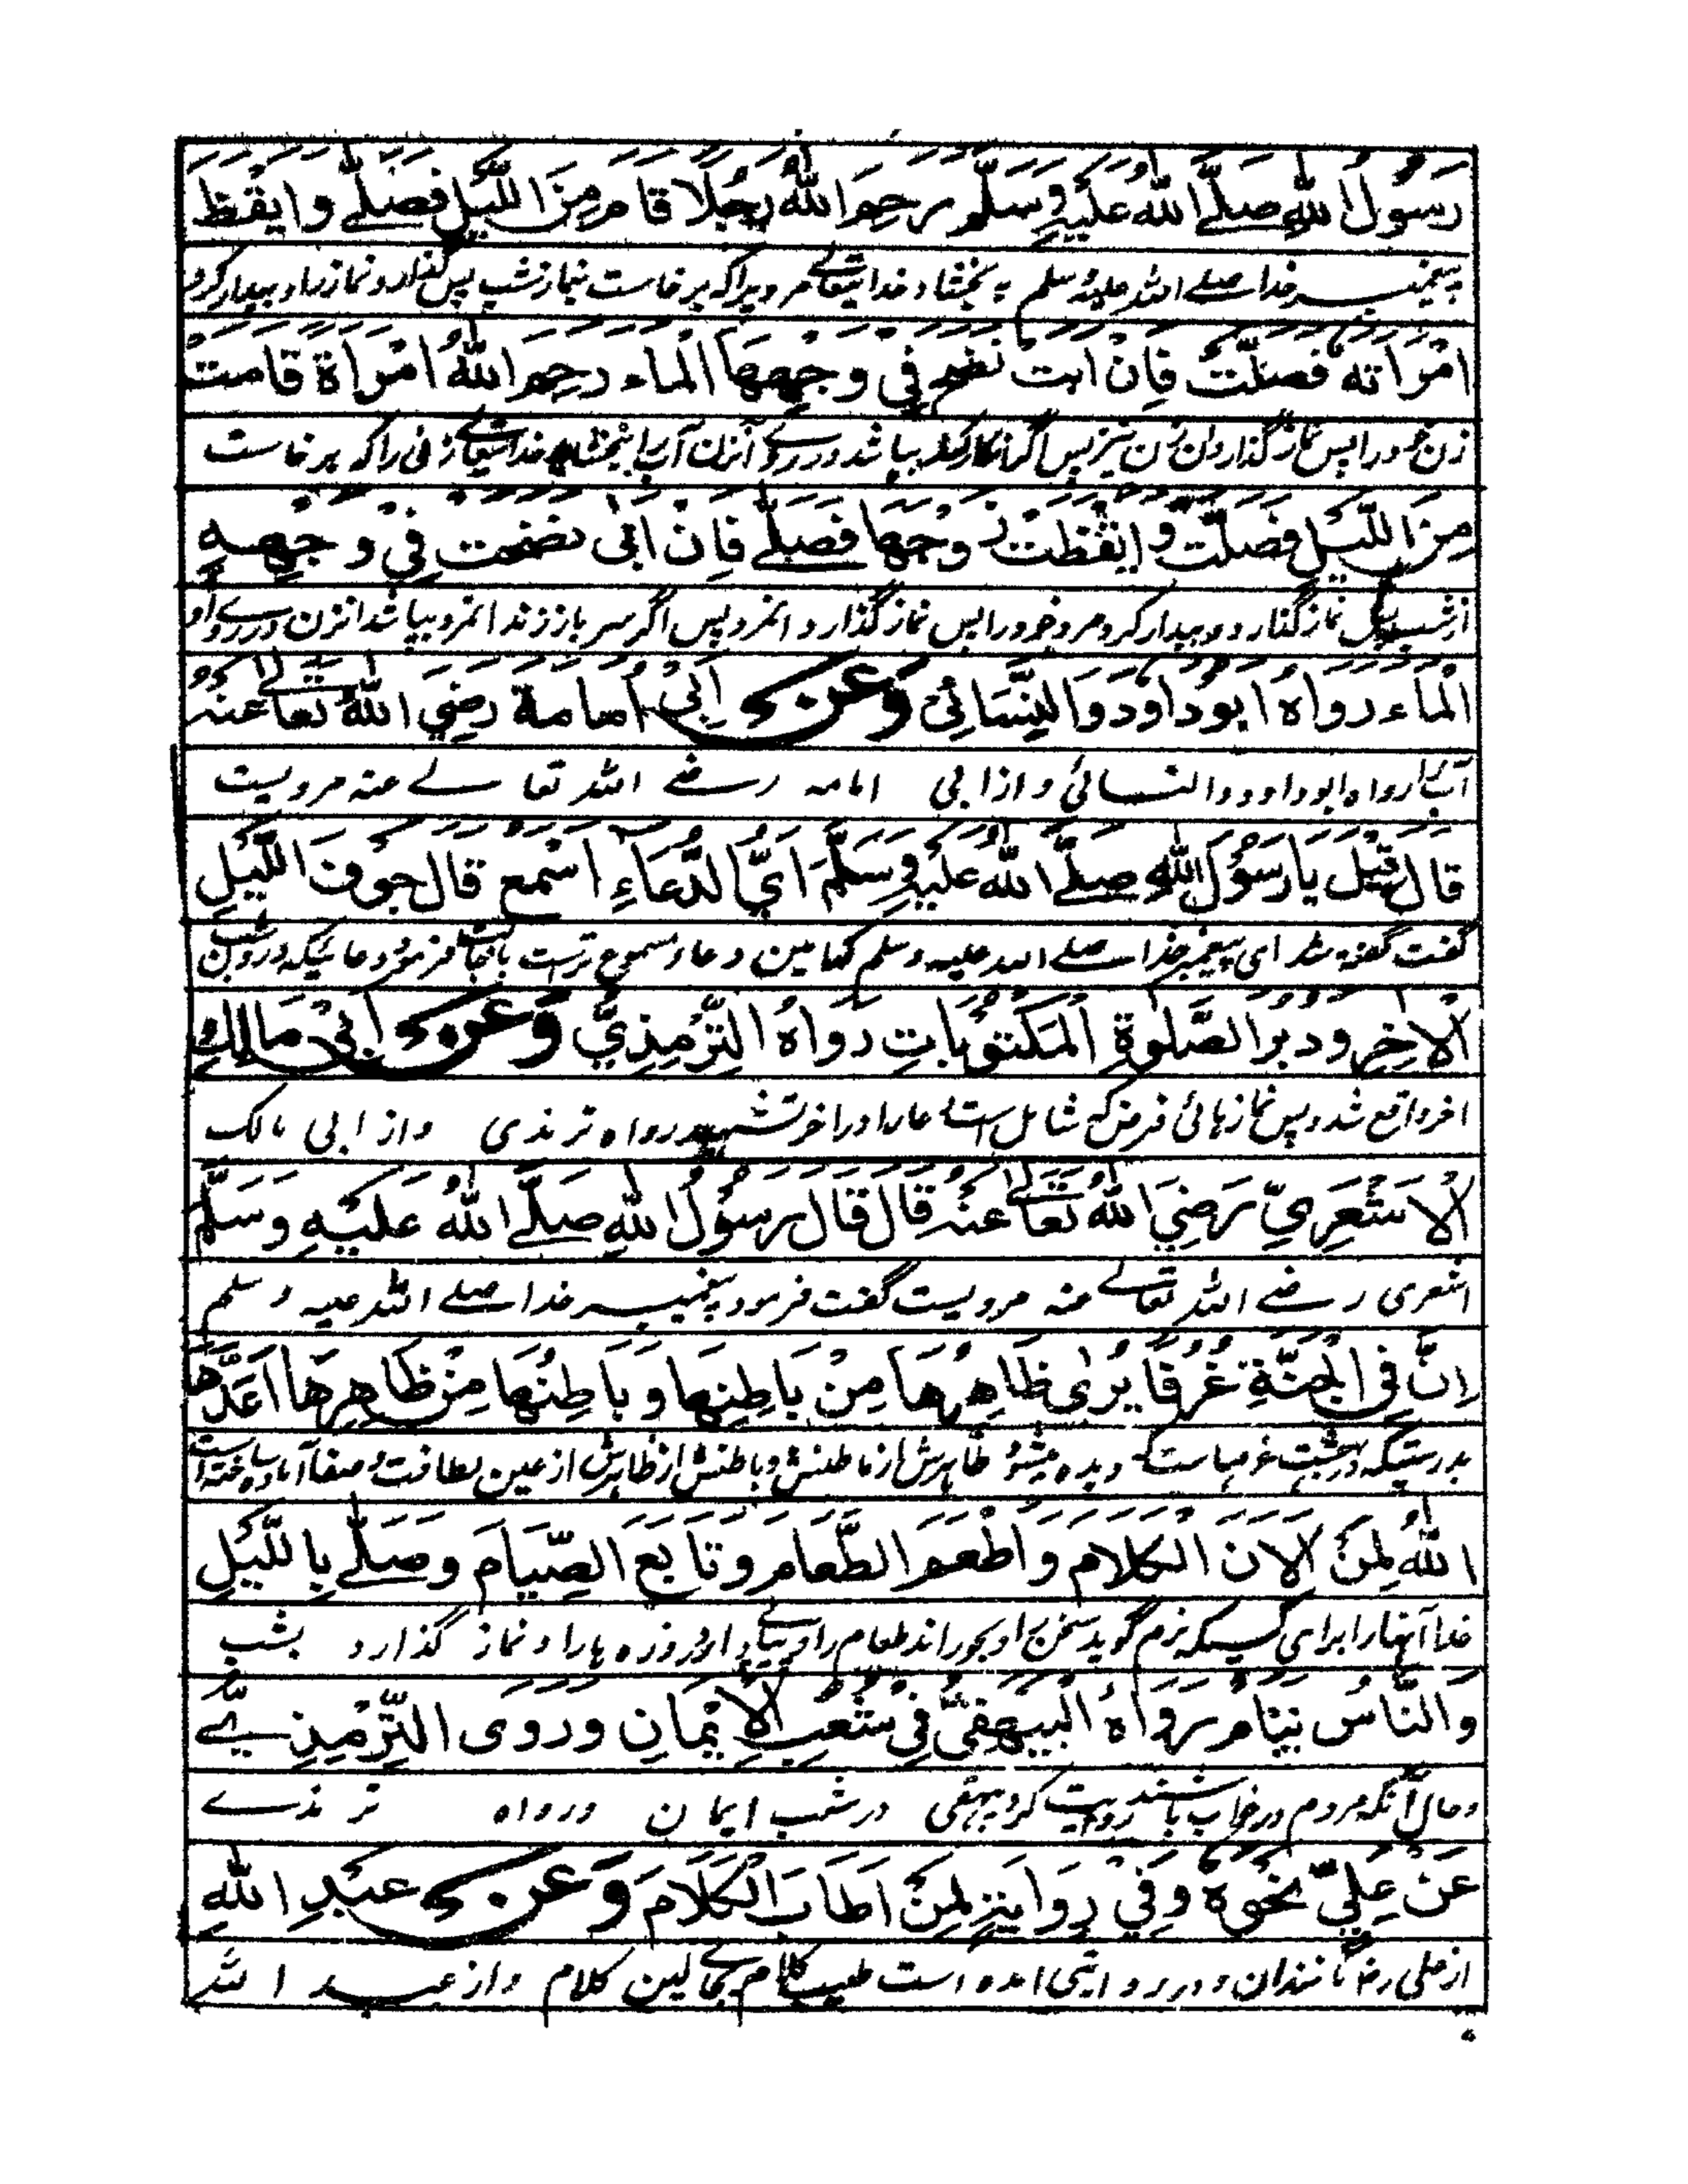 رَسُولُ اللهِ صَلَّے اللهُ عَلَيْهِ وَسَلَّم رَحِمَ اللهُ رَجُلًا قَامَ مِنَ اللَّيْلِ فَصَلّٰے وايقظ
پیغمبر خدا صلے اللہ علیہ وسلم بہ بخشاد خدایتعالے مردیرا کہ برخاست بنماز شب پس گذارد نماز را و بیدار کرد
امْرَاتَه فَصَلَّتْ فَاِنْ ابت نضح فِي وَجْهِهَا الْمَاء رَحِمَ اللهُ امْرَاَة قَامَت
زن خود را پس نماز گذارد ان زن نیز پس اگر بیاشد در روے آنزن آب را بخشاد خدایتعالے زنی را کہ برخاست
مِنَ اللَّيْلِ فَصَلَّتْ وَايْقَظَتْ زَوْجَهَا فَصَلّٰے فَاِنْ ابٰى نضحت فِي وَجْهِهِ
از شب پس نماز گذارد و بیدار کرد مرد خود را پس نماز گذارد انمرد پس اگر سر باز زند انمرد بپاشد انزن در روے او
الْمَاءَ رَوَاهُ اَبُوْدَاوُد وَالنِّسَائِیُ وَعَنْ اَبِيْ اُمَامَة رَضِيَ اللهُ تَعَالٰے عَنْهُ
آب را رواہ ابوداود والنسائی و از ابی امامہ رضے اللہ تعالے عنہ مرویست
قَالَ قِيْلَ يَا رَسُوْلَ اللهِ صَلَّے اللهُ عَلَيْهِ وَسَلَّمَ اَيُّ الدُّعَاءِ اَسْمَع قَالَ جَوْفَ اللَّيْلِ
گفت گفتہ شد ای پیغمبر خدا صلے اللہ علیہ وسلم کدامین دعا مسموع ترست فرمود دعائیکہ در شب
الْاٰخِرِ وَدبر الصَّلٰوةِ الْمَكْتُوْبَاتِ رَوَاهُ التِّرْمِذِيُّ وَعَنْ اَبِيْ مَالِك
اخر واقع شد و پس نماز ہائی فرض کہ شامل است دعا را در اخر تشہد رواہ ترمذی و از ابی مالک
الْاَشْعَرِيِّ رَضِيَ اللهُ تَعَالٰے عَنْهُ قَالَ قَالَ رَسُوْلُ اللهِ صَلَّے اللهُ عَلَيْهِ وَسَلَّم
اشعری رضے اللہ تعالے عنہ مرویست گفت فرمود پیغمبر خدا صلے اللہ علیہ وسلم
اِنَّ فِي الْجَنَّةِ غُرَفًا يُرٰى ظَاهِرُهَا مِنْ بَاطِنِهَا وَبَاطِنُهَا مِنْ ظَاهِرِهَا اَعَدَّهَا
بدرستیکہ در بہشت غرفہاست کہ دیدہ میشود ظاہرش از باطنش و باطنش از ظاہرش از عین لطافت و صفا آمادہ ساختہ است
اللهُ لِمَنْ اَلَانَ الْكَلَامَ وَاَطْعَمَ الطَّعَامَ وَتَابَعَ الصِّيَامَ وَصَلّٰے بِاللَّيْلِ
خدا آنہارا برای کسیکہ نرم گوید سخن را و بخوراند طعام را و پیاپے دارد روزہ ہا را و نماز گذارد بشب
وَالنَّاسُ نِيَامٌ رَوَاهُ الْبَيْهَقِيُّ فِيْ شُعَبِ الْاِيْمَانِ وَرَوَى التِّرْمِذِيُّ
و حال آنکہ مردم در خواب باشند روایت کرد بیہقی در شعب ایمان و رواہ ترمذے
عَنْ عَلِيٍّ نَحْوَهُ وَفِيْ رِوَايَةٍ لِمَنْ اَطَابَ الْكَلَامَ وَعَنْ عَبْدِ اللهِ
از علی رضا مانندان و در روایتی امدہ است طیب کلام بجاے لین کلام و از عبد اللہ